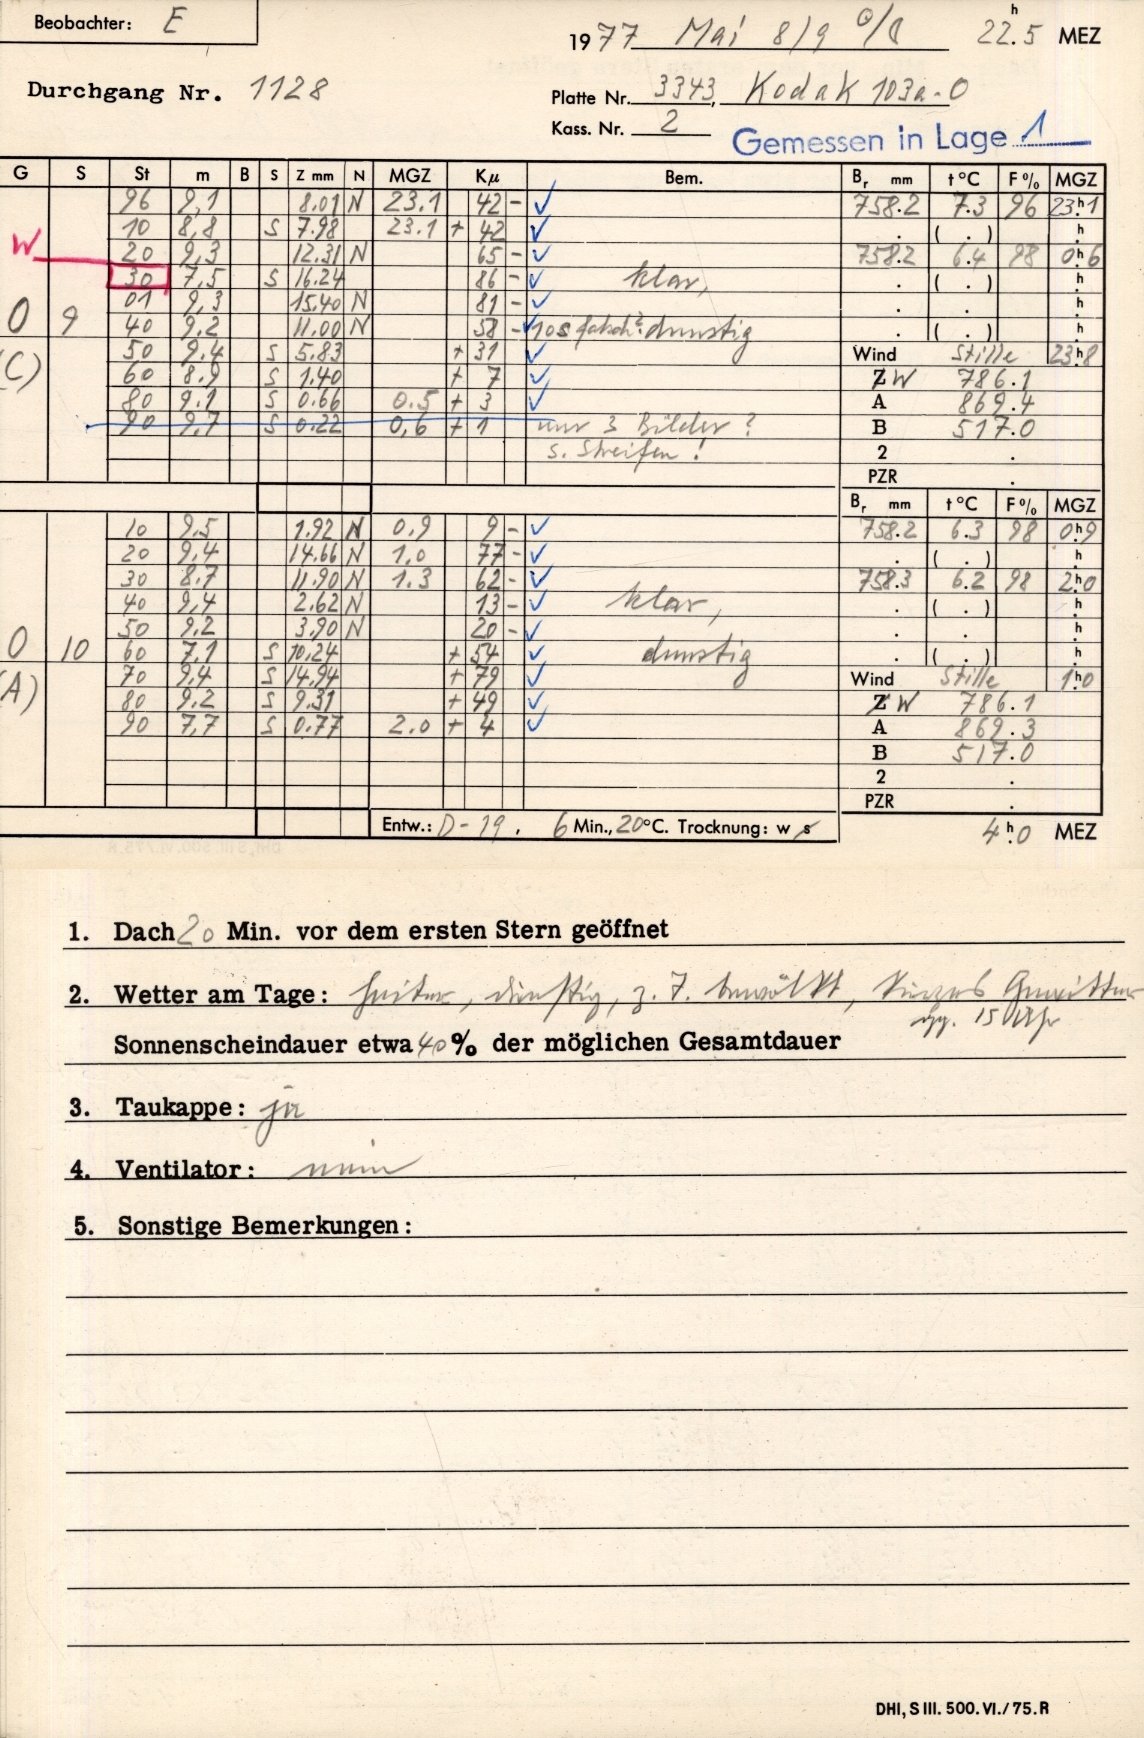 Beobachter: E
1977 Mai 8/9 22h.5 MEZ
Durchgang Nr. 1128
Platte Nr. 3343, Kodak 103a-O
Kass. Nr. 2
Gemessen in Lage 1
G S St m B S Z mm N MGZ Kμ Bem. Br mm t°C F% MGZ
96 9,1 8.01 N 23.1 42 - ✓ 758.2 7.3 96 23h1
10 8,8 S 7.98 23.1 + 42 ✓ . ( . ) h
W 20 9,3 12.31 N 65 - ✓ 758.2 6.4 98 0h6
30 7,5 S 16.24 86 - ✓ klar, . ( . ) h
01 9,3 15.40 N 81 - ✓ . . h
O 9 40 9.2 11.00 N 58 - ✓ 10s falsch? dunstig . ( . ) h
(C) 50 9.4 S 5.83 + 31 ✓ Wind Stille 23h8
60 8.9 S 1.40 + 7 ✓ Z W 786.1
80 9.1 S 0.66 0.5 + 3 ✓ A 869.4
90 9,7 S 0.22 0,6 + 1 nur 3 Bilder? B 517.0
s. Streifen! 2 .
PZR .
Br mm t°C F% MGZ
10 9.5 1.92 N 0.9 9 - ✓ 758.2 6.3 98 0h9
20 9,4 14.66 N 1.0 77 - ✓ . ( . ) h
30 8.7 11.90 N 1.3 62 - ✓ 758.3 6.2 98 2h0
40 9,4 2.62 N 13 - ✓ klar, . ( . ) h
50 9.2 3.90 N 20 - ✓ . . h
O 10 60 7,1 S 10.24 + 54 ✓ dunstig . ( . ) h
(A) 70 9.4 S 14.94 + 79 ✓ Wind Stille 1h0
80 9.2 S 9.31 + 49 ✓ Z W 786.1
90 7,7 S 0.77 2.0 + 4 ✓ A 869.3
B 517.0
2 .
PZR .
Entw.: D-19. 6 Min., 20°C. Trocknung: w s 4h.0 MEZ
1. Dach 20 Min. vor dem ersten Stern geöffnet
2. Wetter am Tage: heiter, dunstig, z. T. bewölkt, kurzes Gewitter
gg. 15 Uhr
Sonnenscheindauer etwa 40 % der möglichen Gesamtdauer
3. Taukappe: ja
4. Ventilator: nein
5. Sonstige Bemerkungen:
DHI, S III. 500. VI./75. R